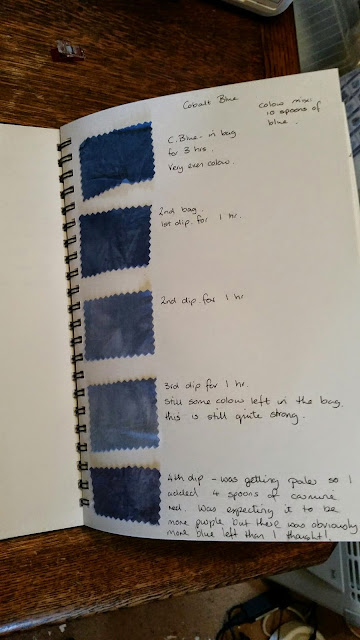 Cobalt Blue
colour mix:
10 spoons of
blue.
C. Blue - in bag
for 3 hrs.
Very even colour.
2nd bag.
1st dip. for 1 hr.
2nd dip for 1 hr
3rd dip for 1 hr.
Still some colour left in the bag.
this is still quite strong.
4th dip - was getting paler so I
added 4 spoons of carmine
red. Was expecting it to be
more purple but there was obviously
more blue left than I thought!